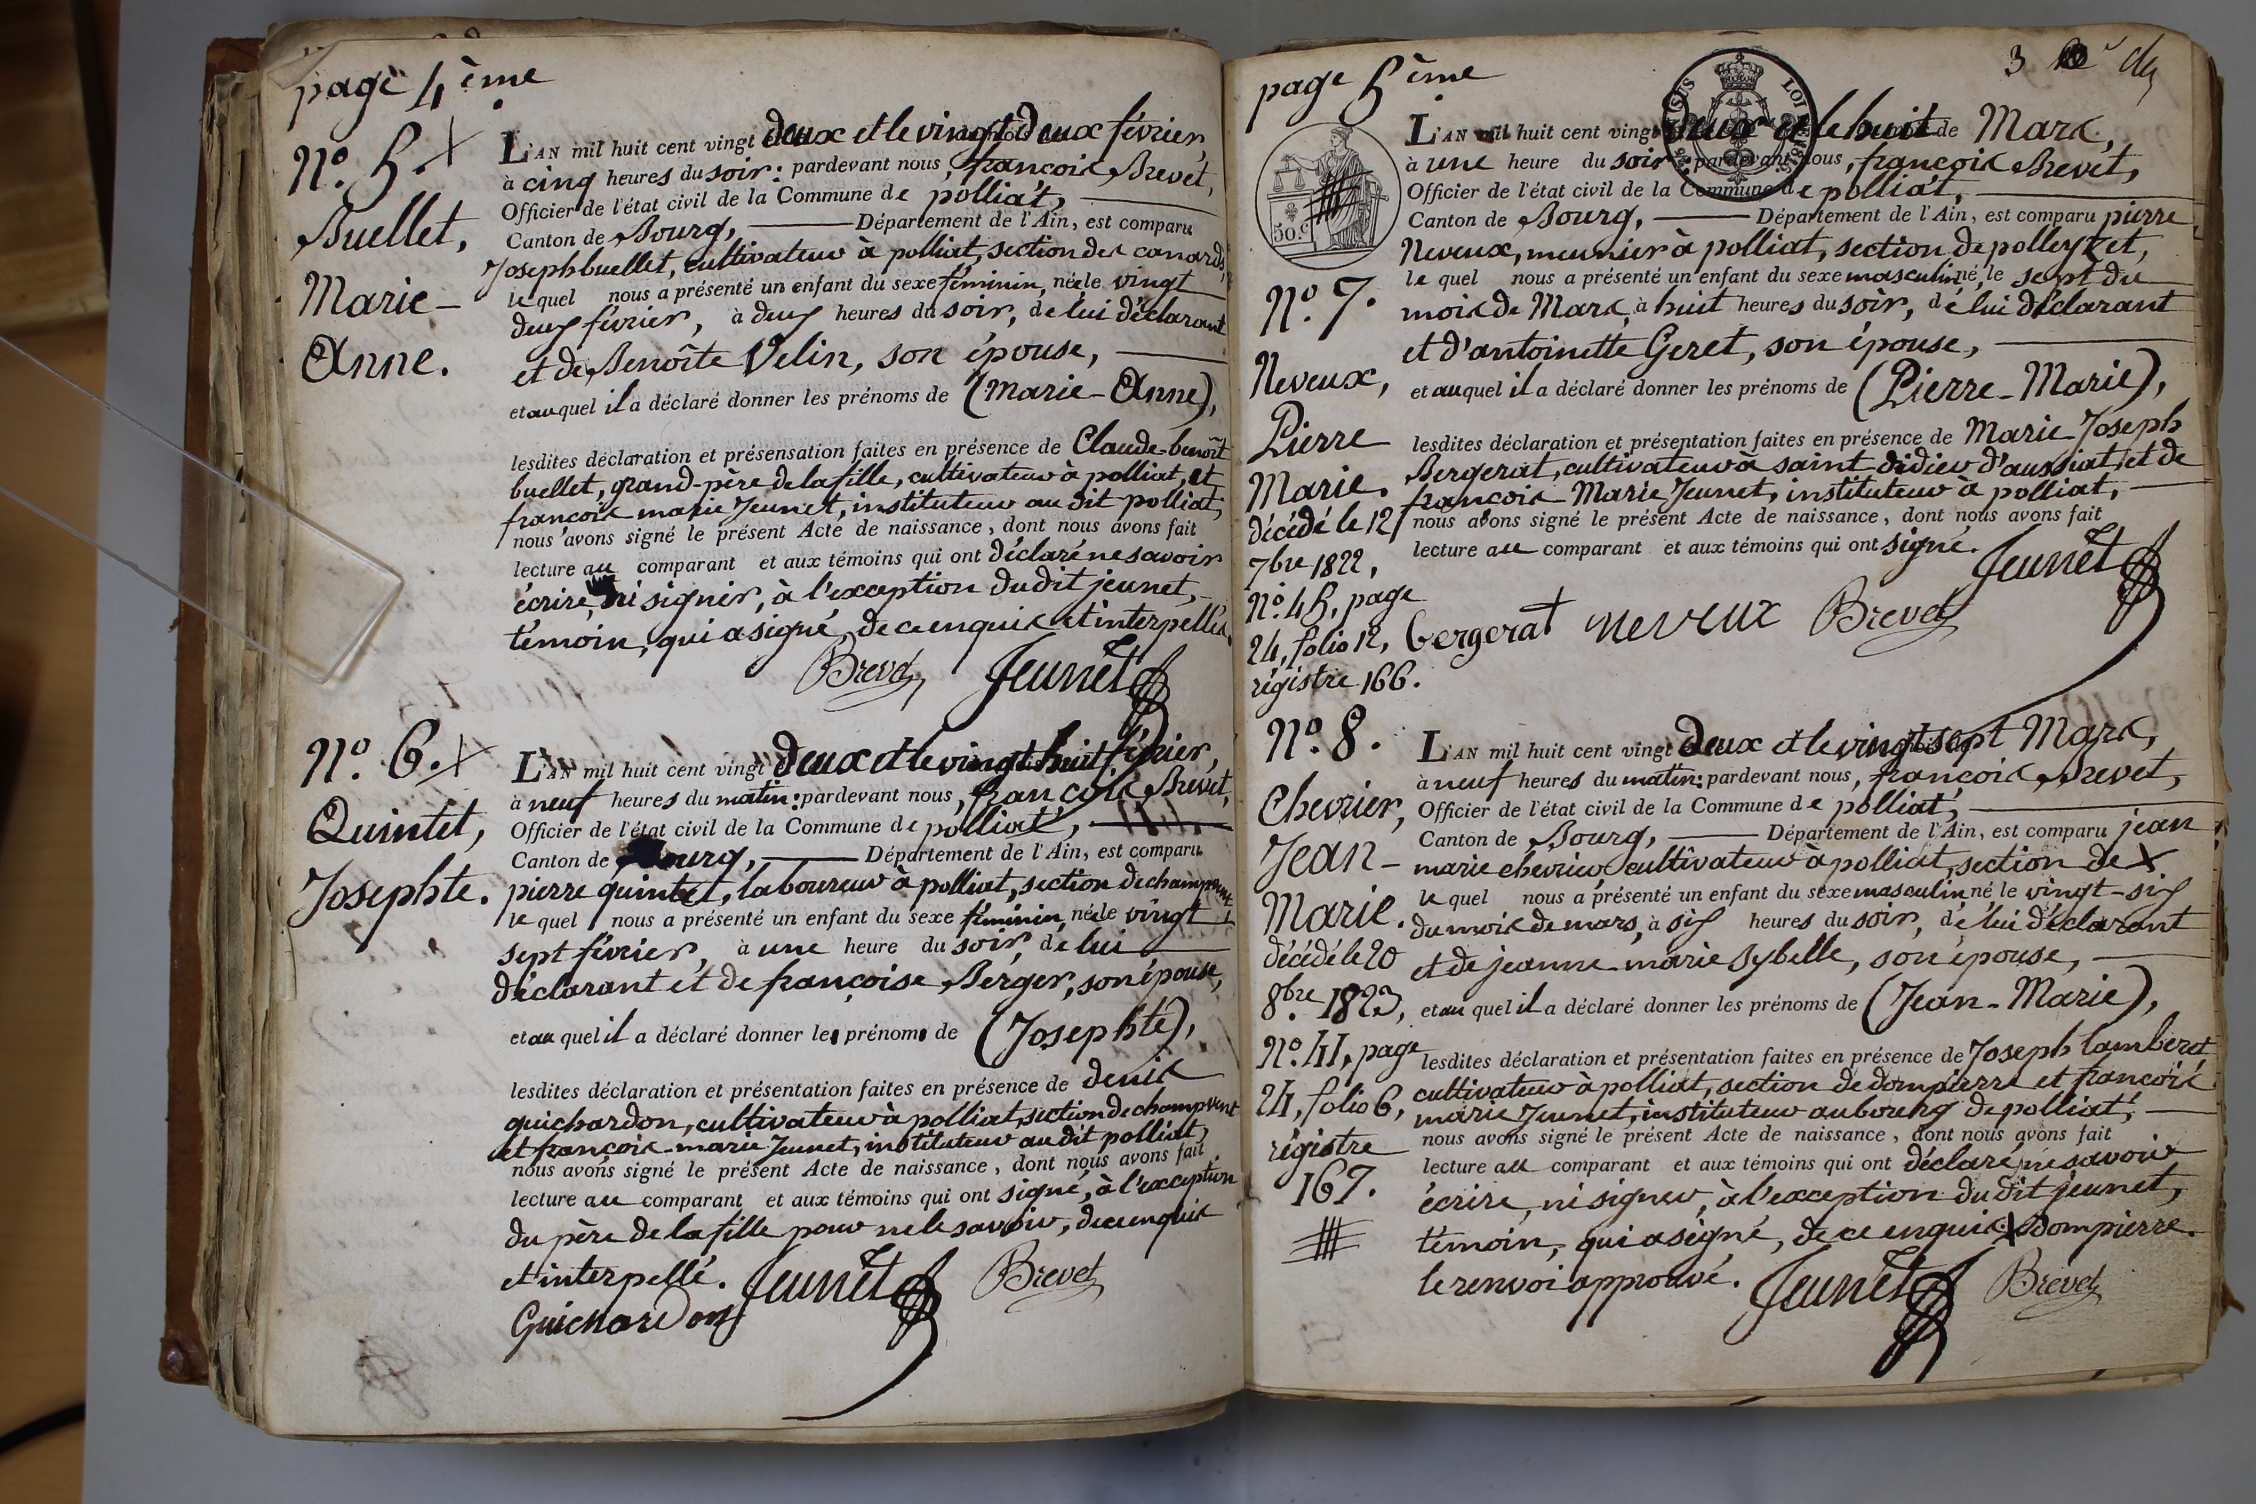 page 4ème
N.° 5.
Buellet,
Marie-
Anne.
L'AN mil huit cent vingt deux et le vingt deux février,
à cinq heures du soir: pardevant nous, françois Brevet,
Officier de l'état civil de la Commune de polliat,
Canton de Bourg, Département de l'Ain, est comparu
Joseph buellet, cultivateur à polliat, section des canards,
le quel nous a présenté un enfant du sexe féminin, née le vingt
deux février, à deux heures du soir, de lui déclarant
et de Benoîte Velin, son épouse,
et auquel il a déclaré donner les prénoms de (Marie-Anne),
lesdites déclaration et présensation faites en présence de Claude-benoît
buellet, grand-père de la fille, cultivateur à polliat, et
françois marie Jeunet, instituteur au dit polliat,
nous avons signé le présent Acte de naissance, dont nous avons fait
lecture au comparant et aux témoins qui ont déclaré ne savoir
écrire, ni signer, à l'exception du dit jeunet,
témoin, qui a signé, de ce enquis et interpellés.
Brevet Jeunet
N.° 6.
Quintet,
Josephte.
L'AN mil huit cent vingt deux et le vingt huit février,
à neuf heures du matin: pardevant nous, françois Brevet,
Officier de l'état civil de la Commune de polliat,
Canton de Bourg, Département de l'Ain, est comparu
pierre quintet, laboureur à polliat, section de champvent
le quel nous a présenté un enfant du sexe féminin, née le vingt
sept février, à une heure du soir, de lui
déclarant et de françoise Berger, son épouse,
et au quel il a déclaré donner les prénoms de (Josephte),
lesdites déclaration et présentation faites en présence de denis
guichardon, cultivateur à polliat, section de champvent
et françois-marie Jeunet, instituteur au dit polliat,
nous avons signé le présent Acte de naissance, dont nous avons fait
lecture au comparant et aux témoins qui ont signé, à l'exception
du père de la fille pour ne le savoir, de ce enquis
et interpellé. Jeunet Brevet
Guichardon
page 5ème
3
50.c
N.° 7.
Neveux,
Pierre
Marie.
décédé le 12
7bre 1822,
N.° 45, page
24, folio 12,
régistre 166.
L'AN mil huit cent vingt deux et le huit de Mars,
à une heure du soir: pardevant nous, françois Brevet,
Officier de l'état civil de la Commune de polliat,
Canton de Bourg, Département de l'Ain, est comparu pierre
Neveux, meunier à polliat, section de polleyzet,
le quel nous a présenté un enfant du sexe masculin né, le sept du
mois de Mars, à huit heures du soir, de lui déclarant
et d'antoinette Geret, son épouse,
et auquel il a déclaré donner les prénoms de (Pierre-Marie),
lesdites déclaration et présentation faites en présence de Marie Joseph
Bergerat, cultivateur à saint didier d'aussiat, et de
françois Marie Jeunet, instituteur à polliat,
nous avons signé le présent Acte de naissance, dont nous avons fait
lecture au comparant et aux témoins qui ont signé.
Jeunet
bergerat neveux Brevet
N.° 8.
Chevrier,
Jean-
Marie.
décédé le 20
8bre 1823,
N.° 41, page
21, folio 6,
régistre
167.
L'AN mil huit cent vingt deux et le vingt sept Mars,
à neuf heures du matin: pardevant nous, françois Brevet,
Officier de l'état civil de la Commune de polliat,
Canton de Bourg, Département de l'Ain, est comparu jean
marie chevrier, cultivateur à polliat, section de X
le quel nous a présenté un enfant du sexe masculin né le vingt-six
du mois de mars, à six heures du soir, de lui déclarant
et de jeanne marie sybelle, son épouse,
et au quel il a déclaré donner les prénoms de (Jean-Marie),
lesdites déclaration et présentation faites en présence de Joseph Lamberet
cultivateur à polliat, section de dompierre et françois
marie Jeunet, instituteur au bourg de polliat,
nous avons signé le présent Acte de naissance, dont nous avons fait
lecture au comparant et aux témoins qui ont déclaré ne savoir
écrire, ni signer, à l'exception du dit jeunet,
témoin, qui a signé, de ce enquis. X dompierre.
le renvoi approuvé. Jeunet Brevet